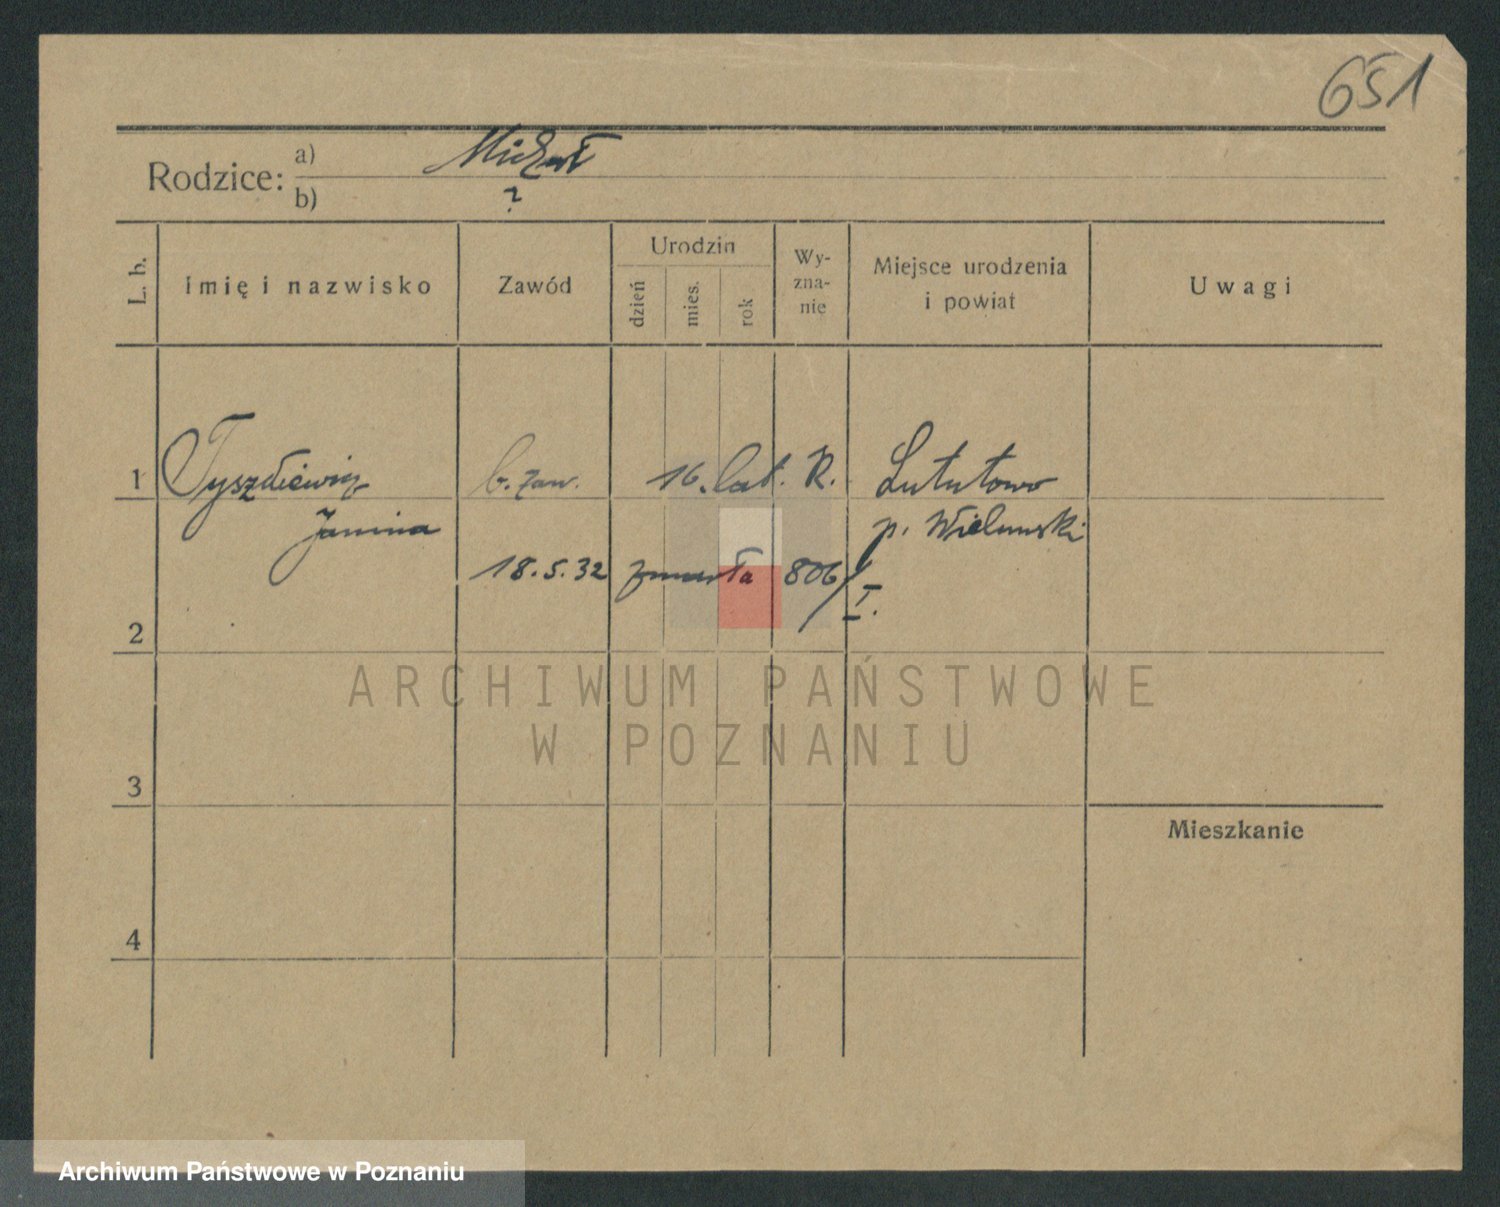 651
Rodzice:
a) Michał
b) ?
L. b.
Imię i nazwisko
Zawód
Urodzin
dzień
mies.
rok
Wy-
zna-
nie
Miejsce urodzenia
i powiat
Uwagi
1 Tyszkiewicz b. zaw. 16. lat. R. Lututowo
Janina p. Wieluński
18.5.32 zmarła 806/I.
2
3
4
Mieszkanie
ARCHIWUM PAŃSTWOWE
W POZNANIU
Archiwum Państwowe w Poznaniu